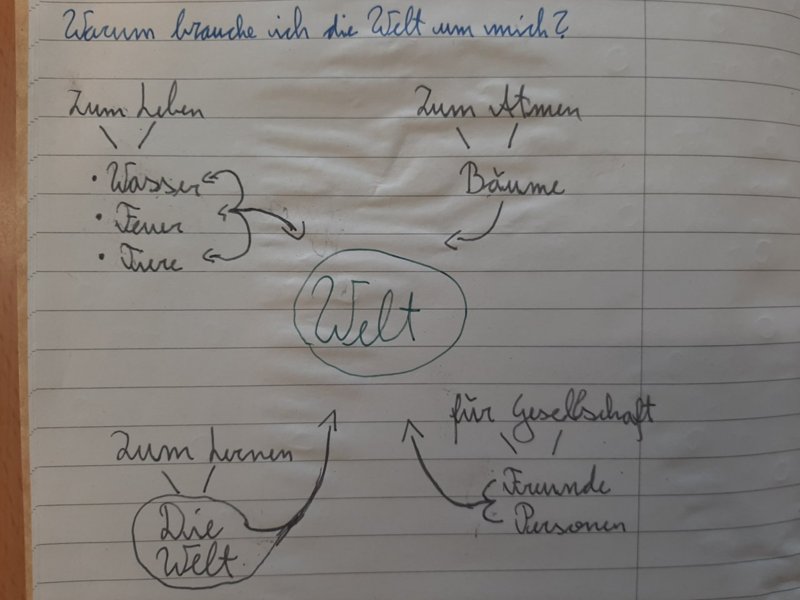 Warum brauche ich die Welt um mich?
Zum Leben
• Wasser
• Feuer
• Tiere
Zum Atmen
Bäume
Welt
Zum Lernen
Die
Welt
für Gesellschaft
Freunde
Personen